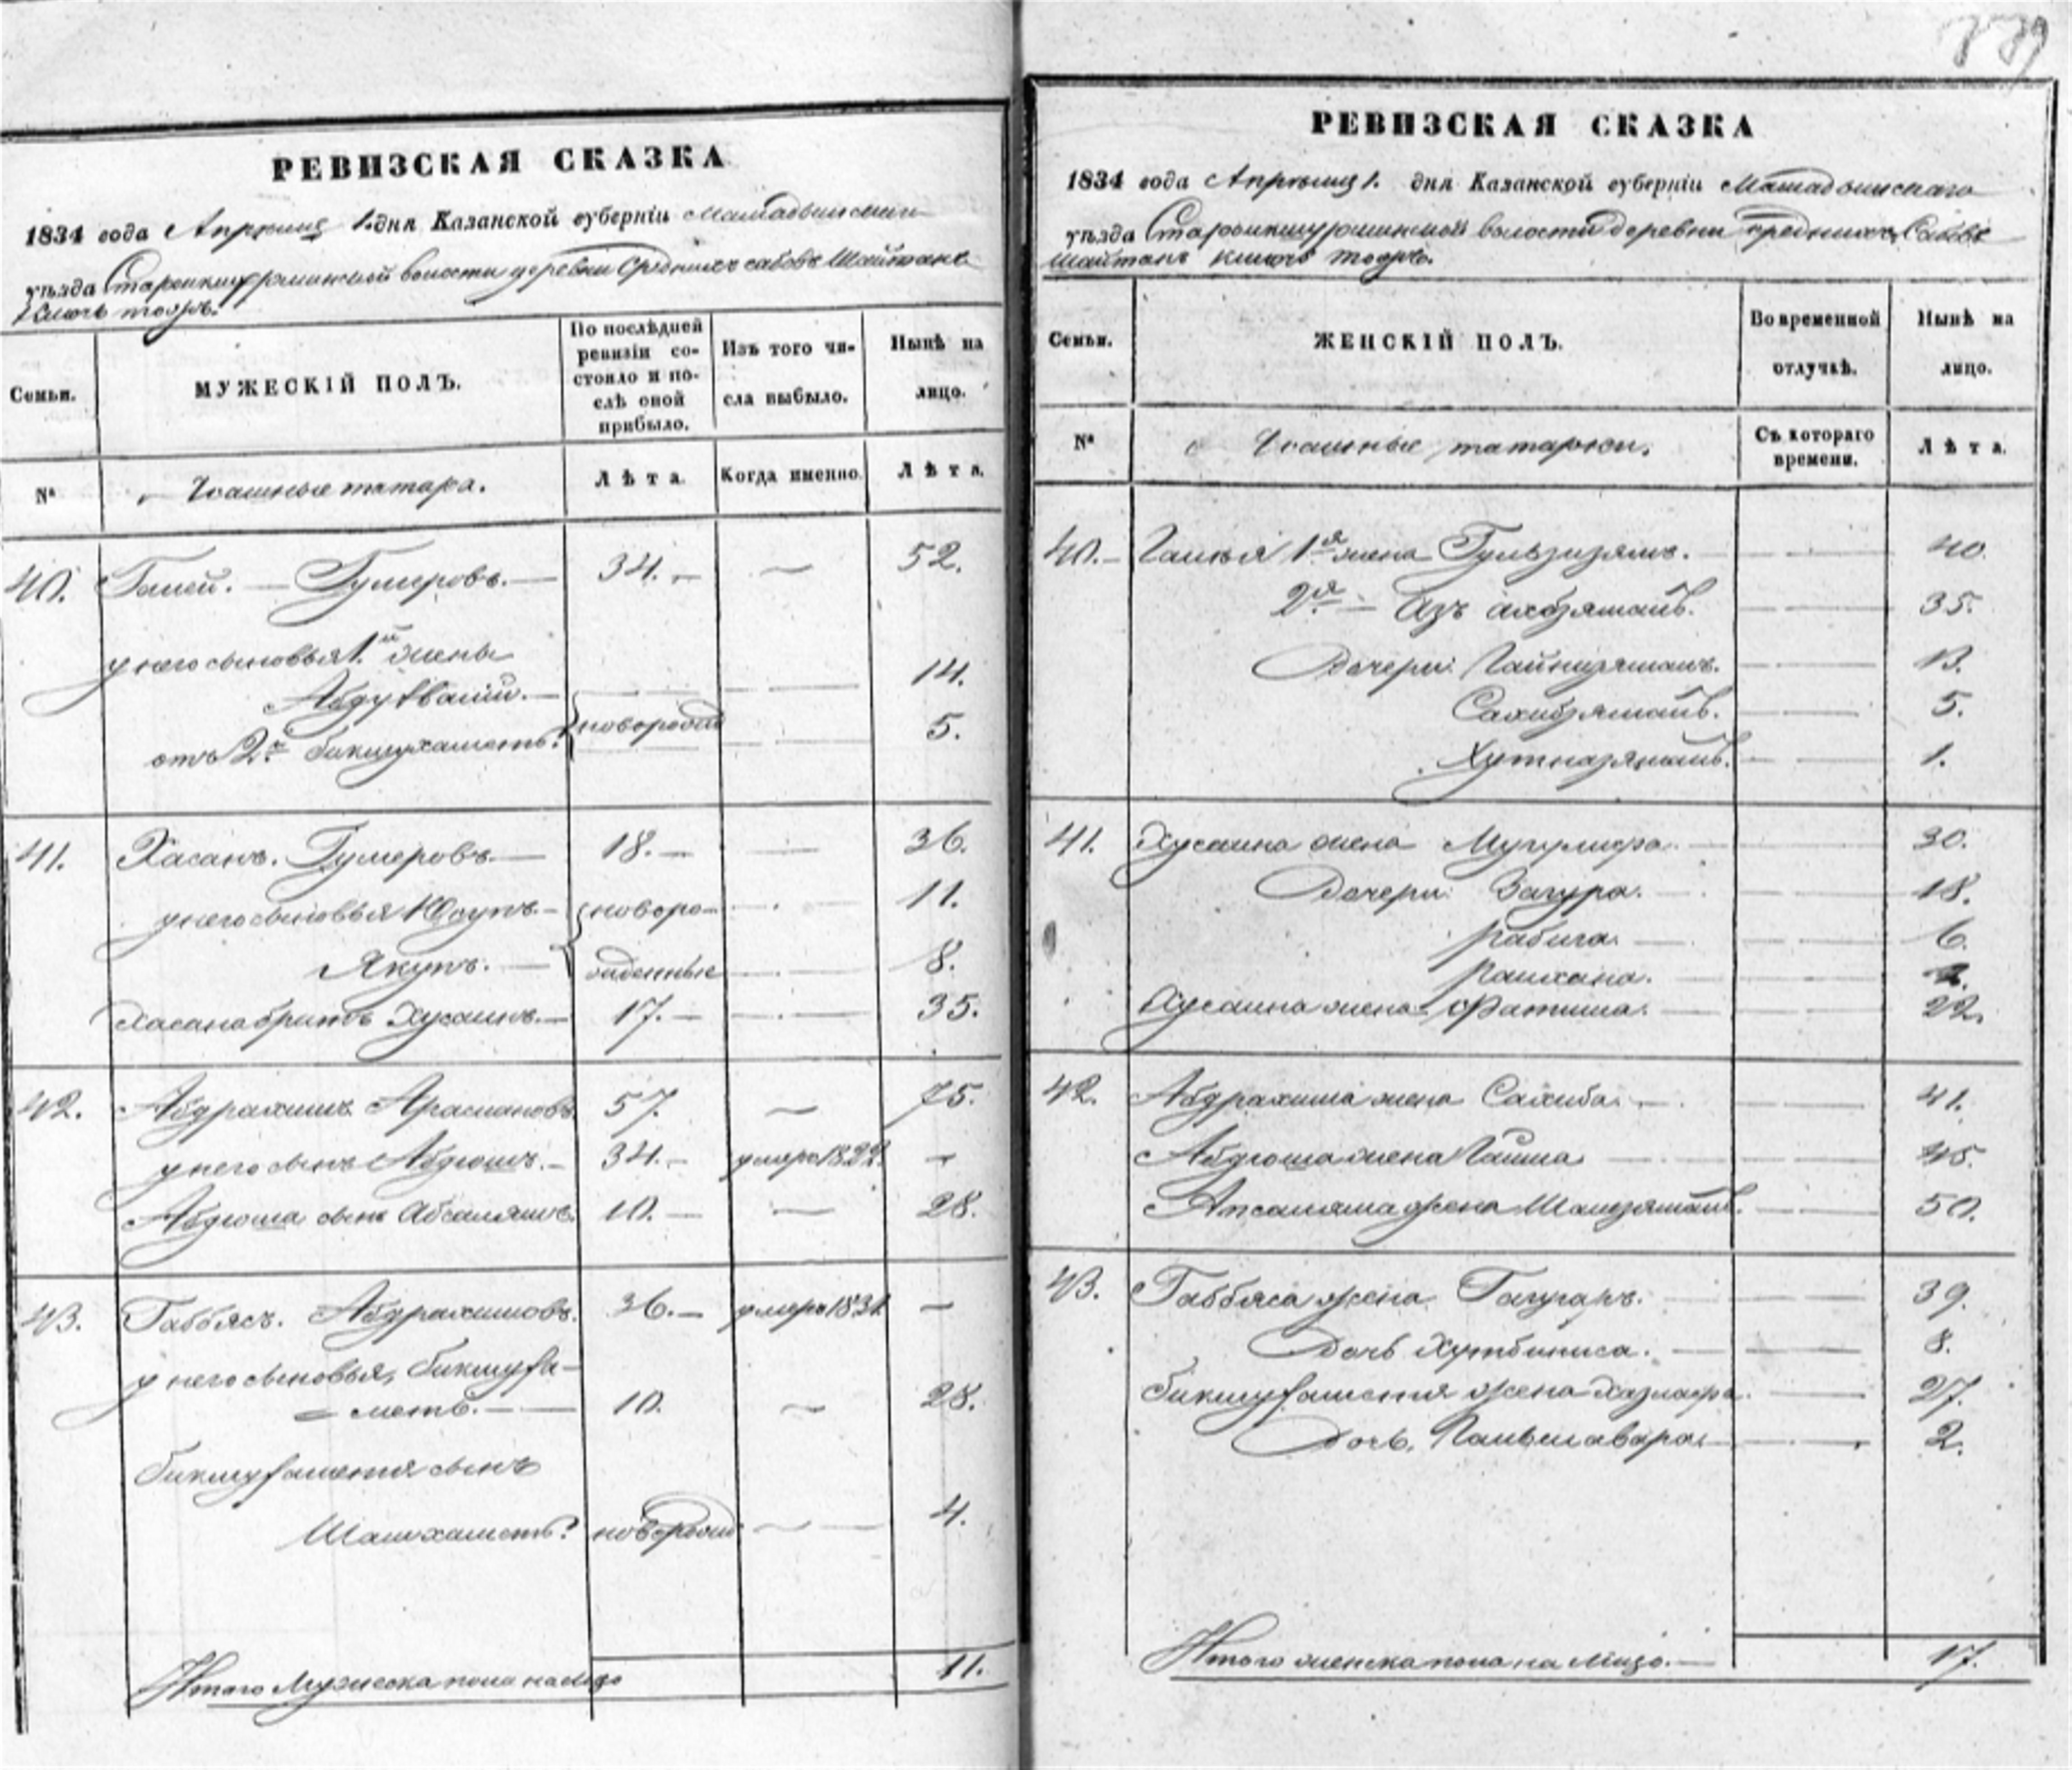 779
РЕВИЗСКАЯ СКАЗКА
1834 года Апрѣля 1. дня Казанской губернiи Мамадышскаго
уѣзда волости деревни Среднихъ Сабовъ Шайтанъ
Ключь тожъ.
Семьи.
МУЖЕСКIЙ ПОЛЪ.
По послѣдней ревизiи со-
стояло и по-
слѣ оной
прибыло.
Изъ того чи-
сла выбыло.
Нынѣ на
лицо.
№
Ясашные татара.
Лѣта.
Когда именно.
Лѣта.
40. Галей. — Гумеровъ. — 34. — — 52.
у него сыновья 1.й жены
Абдулвалий. — 14.
отъ 2.й Бикмухаметъ. новорожд 5.
41. Хасанъ. Гумеровъ. — 18. — — 36.
у него сыновья Юсупъ. — новоро- 11.
Якупъ. — жденные 8.
Хасана братъ Хусаинъ. — 17. — — 35.
42. Абдрахимъ Арслановъ 57. — 75.
у него сынъ Абдюшъ. — 34. — умеръ 1822. —
Абдюша сынъ Абсалямъ. 10. — — 28.
43. Габбясъ. Абдрахимовъ. 36. — умеръ 1831 —
у него сыновья, Бикмуха-
= метъ. — 10. — 28.
Бикмухаметя сынъ
Шаихаметъ новорожд — 4.
Итого Мужеска пола на лицо 11.
РЕВИЗСКАЯ СКАЗКА
1834 года Апрѣля 1. дня Казанской губернiи Мамадышскаго
уѣзда волости деревни Среднихъ Сабовъ
Шайтанъ ключь тожъ.
Семьи.
ЖЕНСКIЙ ПОЛЪ.
Во временной
отлучкѣ.
Нынѣ на
лицо.
№
Ясашные татарки.
Съ котораго
времени.
Лѣта.
40. — Галея 1я жена Гульзизямъ. — 40.
2я — — 35.
Дочери: Гайнизямалъ. — 13.
Сахибзямалъ. — 5.
1.
41. Хусаина жена — 30.
Дочери: Загура. — 18.
Рабига. — 6.
Раихана. —
Хусаина жена Фатима. — 22.
42. Абдрахима жена Сахиба. — 41.
Абдюша жена Гайша — 45.
Апсаляма жена Шамзямалъ. — 50.
43. Габбяса жена Гаугаръ. — 39.
Дочь Хутбиниса. — 8.
Бикмухаметя жена — 27.
Дочь, — 2.
Итого женска пола на лицо. — 17.